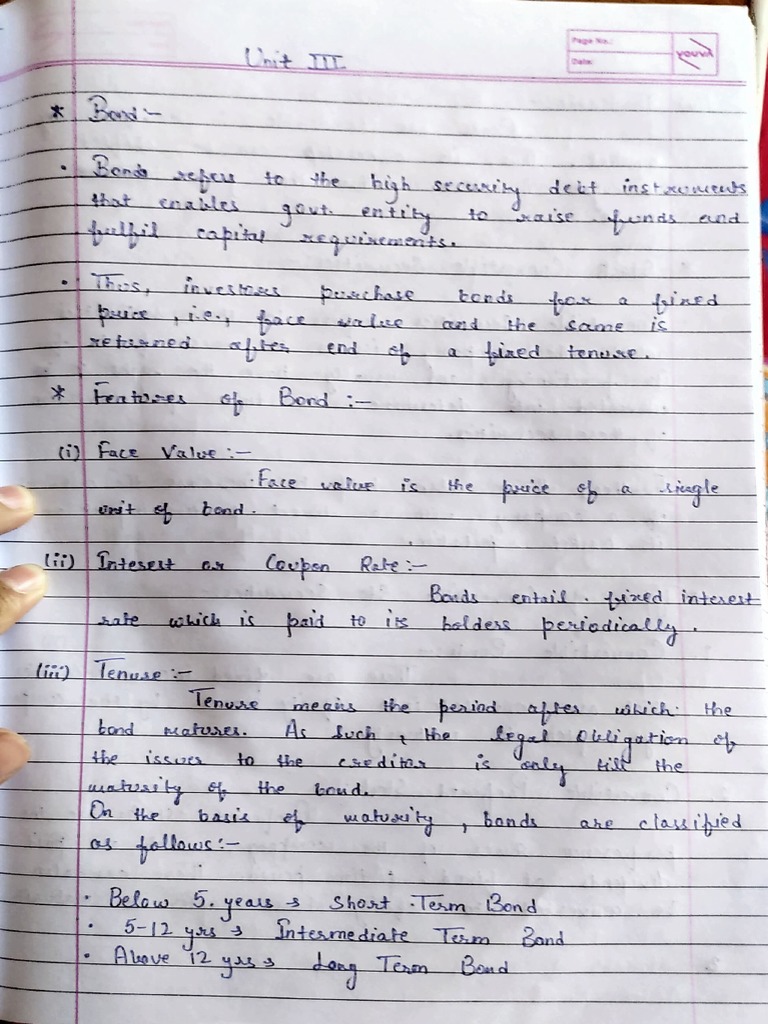 Page No.:
Date:
YOUVA
Unit III
* Bond :-
• Bonds refers to the high security debt instruments
that enables govt. entity to raise funds and
fulfil capital requirements.
• Thus, investors purchase bonds for a fixed
price, i.e., face value and the same is
returned after end of a fixed tenure.
* Features of Bond :-
(i) Face Value :-
Face value is the price of a single
unit of bond.
(ii) Interest or Coupon Rate :-
Bonds entail fixed interest
rate which is paid to its holders periodically.
(iii) Tenure :-
Tenure means the period after which the
bond matures. As such, the legal obligation of
the issuer to the creditor is only till the
maturity of the bond.
On the basis of maturity, bonds are classified
as follows :-
• Below 5 years → Short Term Bond
• 5-12 yrs → Intermediate Term Bond
• Above 12 yrs → Long Term Bond